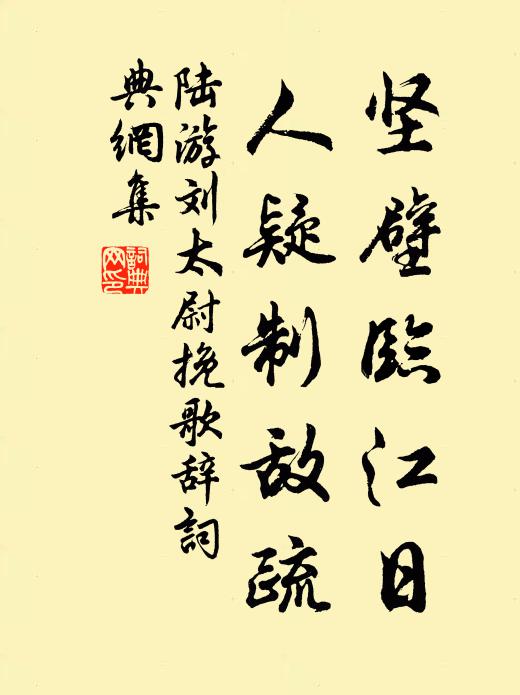 坚壁臨江日
人疑制敌疏
陆游刘太尉挽歌辞詞
典網集
詞典
网印